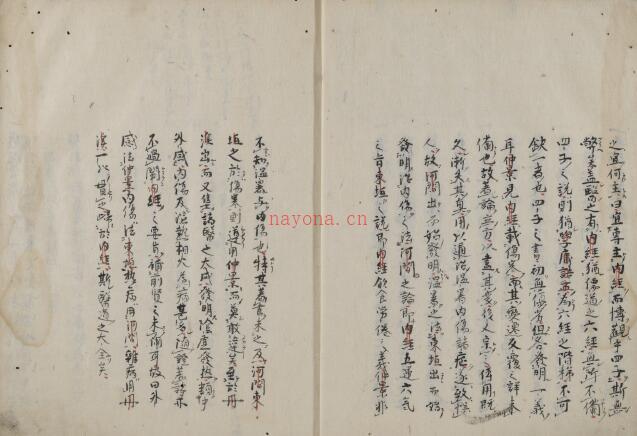 之宜何主曰宜專主内經而博觀乎四子斯無
弊矣盖醫之有内經猶儒道之六經無所不備
四子之説則猶學庸語孟為六經之階梯不可
缺一者也四子之書初無優劣但各發明一義
耳仲景見内經載傷寒而其變遷反覆之詳未
備也故著論立方以盡其變後人宗之傳用既
久漸失其真用以通治温暑内傷諸症遂致誤
人故河間出而始發明温暑之治東垣出而始
發明治内傷之法河間之論即内經五運六氣
之旨東垣之説即内經飲食勞倦之義仲景非
不知温暑與内傷也特其著書未之及河間東
垣之於傷寒則遵用仲景而莫敢違矣至於丹
溪出而又集諸醫之大成發明陰虚發熱類乎
外感内傷及濕熱相火為病甚多隨證著論亦
不過闡内經之要旨補前賢之未備耳故曰外
感法仲景内傷法東垣熱病用河間雜病用丹
溪一以貫之歸於内經斯醫道之大全矣
nayona.cn